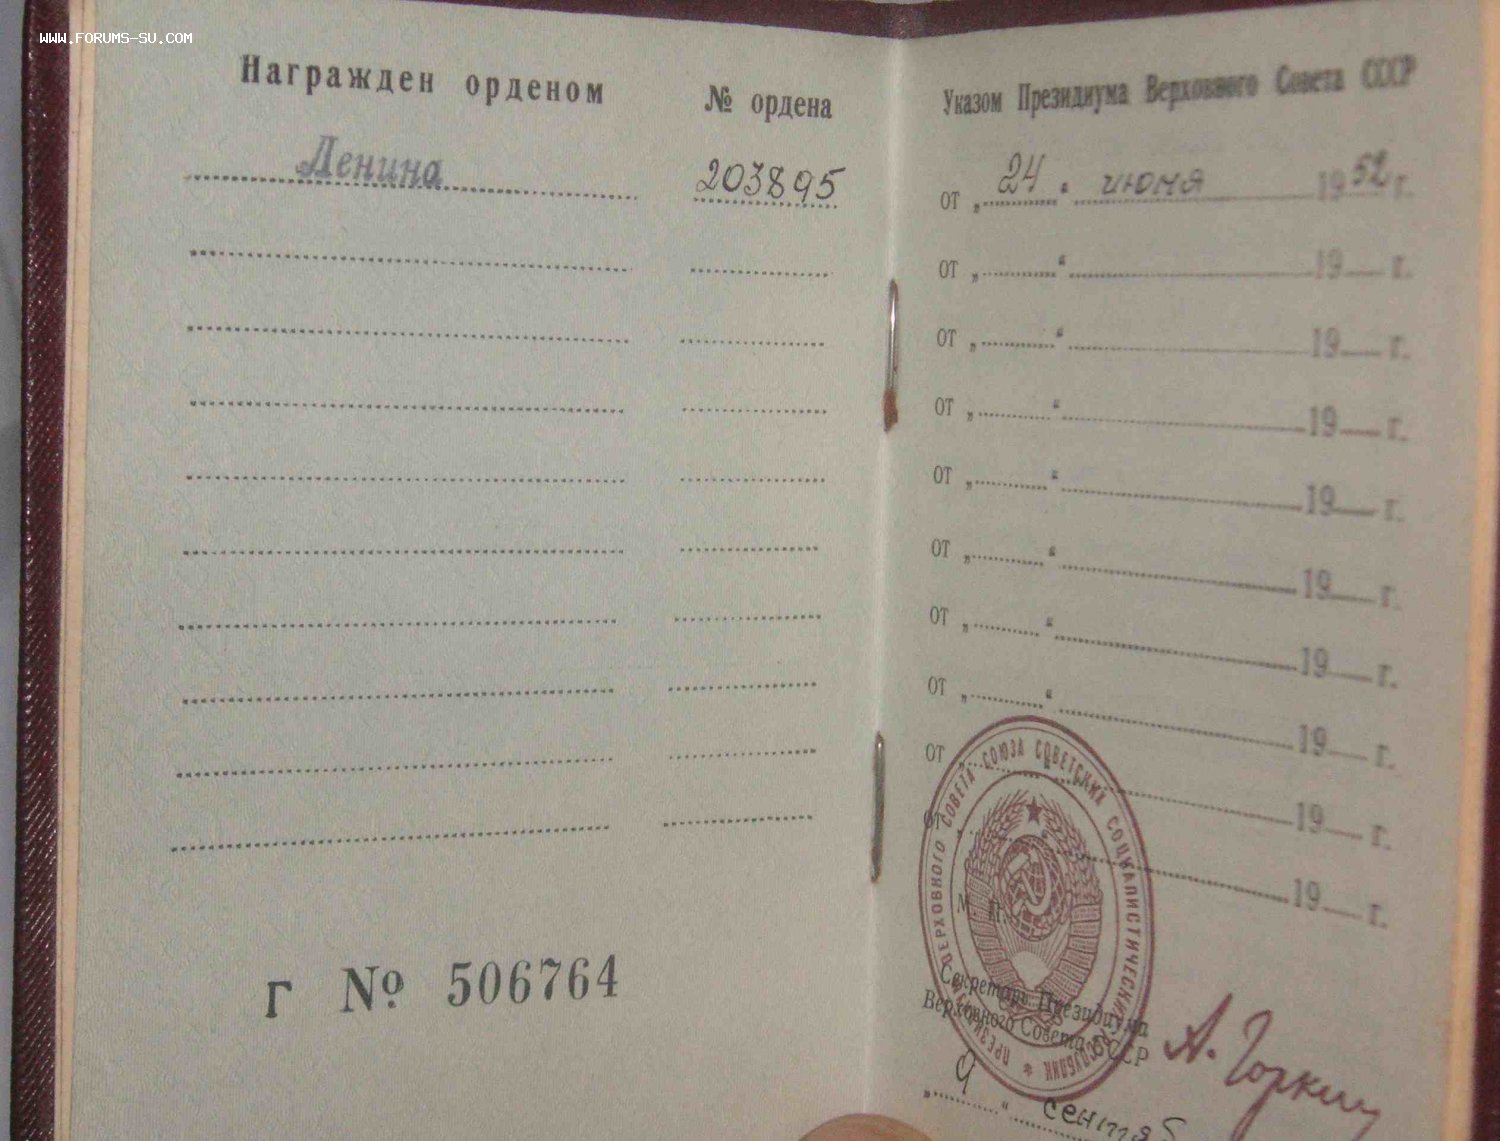 WWW.FORUMS-SU.COM
Награжден орденом
№ ордена
Ленина
203895
Г № 506764
Указом Президиума Верховного Совета СССР
от „ 24 “ июня 1952 г.
от „ “ 19 г.
от „ “ 19 г.
от „ “ 19 г.
от „ “ 19 г.
от „ “ 19 г.
от „ “ 19 г.
от „ “ 19 г.
от „ “ 19 г.
от „ 19 г.
ПРЕЗИДИУМ ВЕРХОВНОГО СОВЕТА СОЮЗА СОВЕТСКИХ СОЦИАЛИСТИЧЕСКИХ РЕСПУБЛИК
М. П.
Секретарь Президиума
Верховного Совета СССР
А. Горкин
„ 9 “ сентяб